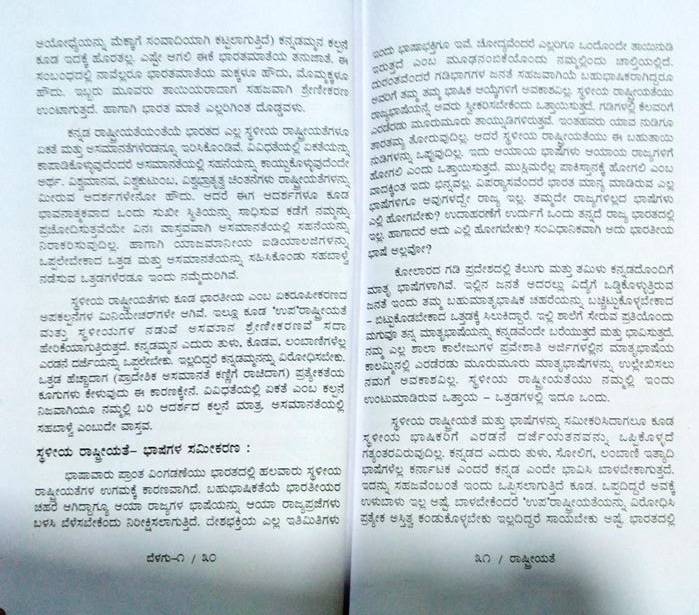 ಅಯೋಧ್ಯೆಯನ್ನು ಮೆಕ್ಕಾಗೆ ಸಂವಾದಿಯಾಗಿ ಕಟ್ಟಲಾಗುತ್ತಿದೆ) ಕನ್ನಡಮ್ಮನ ಕಲ್ಪನೆ
ಕೂಡ ಇದಕ್ಕೆ ಹೊರತಲ್ಲ. ಎಷ್ಟೇ ಆಗಲಿ ಈಕೆ ಭಾರತಮಾತೆಯ ತನುಜಾತೆ. ಈ
ಸಂಬಂಧದಲ್ಲಿ ನಾವೆಲ್ಲರೂ ಭಾರತಮಾತೆಯ ಮಕ್ಕಳೂ ಹೌದು, ಮೊಮ್ಮಕ್ಕಳೂ
ಹೌದು. ಇಬ್ಬರು ಮೂವರು ತಾಯಿಯರಾದಾಗ ಸಹಜವಾಗಿ ಶ್ರೇಣೀಕರಣ
ಉಂಟಾಗುತ್ತದೆ. ಹಾಗಾಗಿ ಭಾರತ ಮಾತೆ ಎಲ್ಲರಿಗಿಂತ ದೊಡ್ಡವಳು.
ಕನ್ನಡ ರಾಷ್ಟ್ರೀಯತೆಯಂತೆಯೆ ಭಾರತದ ಎಲ್ಲ ಸ್ಥಳೀಯ ರಾಷ್ಟ್ರೀಯತೆಗಳೂ
ಏಕತೆ ಮತ್ತು ಅಸಮಾನತೆಗಳೆರಡನ್ನೂ ಇರಿಸಿಕೊಂಡಿವೆ. ವಿವಿಧತೆಯಲ್ಲಿ ಏಕತೆಯನ್ನು
ಕಾಪಾಡಿಕೊಳ್ಳುವುದೆಂದರೆ ಅಸಮಾನತೆಯಲ್ಲಿ ಸಹನೆಯನ್ನು ಕಾಯ್ದುಕೊಳ್ಳುವುದೆಂದೇ
ಅರ್ಥ. ವಿಶ್ವಮಾನವ, ವಿಶ್ವಕುಟುಂಬ, ವಿಶ್ವಭ್ರಾತೃತ್ವ ಚಿಂತನೆಗಳು ರಾಷ್ಟ್ರೀಯತೆಗಳನ್ನು
ಮೀರುವ ಆದರ್ಶಗಳೇನೋ ಹೌದು. ಆದರೆ ಈಗ ಆದರ್ಶಗಳೂ ಕೂಡ
ಭಾವನಾತ್ಮಕವಾದ ಒಂದು ಸುಖೀ ಸ್ಥಿತಿಯನ್ನು ಸಾಧಿಸುವ ಕಡೆಗೆ ನಮ್ಮನ್ನು
ಪ್ರಚೋದಿಸುತ್ತವೆಯೇ ವಿನಃ ವಾಸ್ತವವಾಗಿ ಅಸಮಾನತೆಯಲ್ಲಿ ಸಹನೆಯನ್ನು
ನಿರಾಕರಿಸುವುದಿಲ್ಲ. ಹಾಗಾಗಿ ಯಾಜಮಾನೀಯ ಐಡಿಯಾಲಜಿಗಳನ್ನು
ಒಪ್ಪಲೇಬೇಕಾದ ಒತ್ತಡ ಮತ್ತು ಅಸಮಾನತೆಯನ್ನು ಸಹಿಸಿಕೊಂಡು ಸಹಬಾಳ್ವೆ
ನಡೆಸುವ ಒತ್ತಡಗಳೆರಡೂ ಇಂದು ನಮ್ಮೆದುರಿಗಿವೆ.
ಸ್ಥಳೀಯ ರಾಷ್ಟ್ರೀಯತೆಗಳು ಕೂಡ ಭಾರತೀಯ ಎಂಬ ಏಕರೂಪೀಕರಣದ
ಅಪಕಲ್ಪನೆಗಳ ಮಿನಿಯೇಚರ್‌ಗಳೇ ಆಗಿವೆ. ಇಲ್ಲೂ ಕೂಡ 'ಉಪ'ರಾಷ್ಟ್ರೀಯತೆ
ಮತ್ತು ಸ್ಥಳೀಯಗಳ ನಡುವೆ ಅಸಮಾನ ಶ್ರೇಣೀಕರಣವೆ ಸದಾ
ಹೇರಿಕೆಯಾಗುತ್ತಿರುತ್ತದೆ. ಕನ್ನಡಮ್ಮನ ಎದುರು ತುಳು, ಕೊಡವ, ಲಂಬಾಣಿಗಳೆಲ್ಲ
ಎರಡನೆ ದರ್ಜೆಯನ್ನು ಒಪ್ಪಲೇಬೇಕು. ಇಲ್ಲದಿದ್ದರೆ ಕನ್ನಡಮ್ಮನನ್ನು ವಿರೋಧಿಸಬೇಕು.
ಒತ್ತಡ ಹೆಚ್ಚಾದಾಗ (ಪ್ರಾದೇಶಿಕ ಅಸಮಾನತೆ ಕಣ್ಣಿಗೆ ರಾಚಿದಾಗ) ಪ್ರತ್ಯೇಕತೆಯ
ಕೂಗುಗಳು ಕೇಳುವುದು ಈ ಕಾರಣಕ್ಕೇನೆ. ವಿವಿಧತೆಯಲ್ಲಿ ಏಕತೆ ಎಂಬ ಕಲ್ಪನೆ
ನಿಜವಾಗಿಯೂ ನಮ್ಮಲ್ಲಿ ಬರಿ ಆದರ್ಶದ ಕಲ್ಪನೆ ಮಾತ್ರ. ಅಸಮಾನತೆಯಲ್ಲಿ
ಸಹಬಾಳ್ವೆ ಎಂಬುದೇ ವಾಸ್ತವ.
ಸ್ಥಳೀಯ ರಾಷ್ಟ್ರೀಯತೆ– ಭಾಷೆಗಳ ಸಮೀಕರಣ :
ಭಾಷಾವಾರು ಪ್ರಾಂತ ವಿಂಗಡಣೆಯು ಭಾರತದಲ್ಲಿ ಹಲವಾರು ಸ್ಥಳೀಯ
ರಾಷ್ಟ್ರೀಯತೆಗಳ ಉಗಮಕ್ಕೆ ಕಾರಣವಾಗಿದೆ. ಬಹುಭಾಷಿಕತೆಯೆ ಭಾರತೀಯರ
ಚಹರೆ ಆಗಿದ್ದಾಗ್ಯೂ ಆಯಾ ರಾಜ್ಯಗಳ ಭಾಷೆಯನ್ನು ಆಯಾ ರಾಜ್ಯಪ್ರಜೆಗಳು
ಬಳಸಿ ಬೆಳೆಸಬೇಕೆಂದು ನಿರೀಕ್ಷಿಸಲಾಗುತ್ತಿದೆ. ದೇಶಭಕ್ತಿಯ ಎಲ್ಲ ಇತಿಮಿತಿಗಳು
ಬೆಳಗು-೧ / ೩೦
ಇಂದು ಭಾಷಾಭಕ್ತಿಗೂ ಇವೆ. ಚೋದ್ಯವೆಂದರೆ ಎಲ್ಲರಿಗೂ ಒಂದೊಂದೇ ತಾಯಿನುಡಿ
ಇರುತ್ತದೆ ಎಂಬ ಮೂಢನಂಬಿಕೆಯೊಂದು ನಮ್ಮಲ್ಲಿಂದು ಚಾಲ್ತಿಯಲ್ಲಿದೆ.
ದುರಂತವೆಂದರೆ ಗಡಿಭಾಗಗಳ ಜನತೆ ಸಹಜವಾಗಿಯೆ ಬಹುಭಾಷಿಕರಾಗಿದ್ದರೂ
ಅವರಿಗೆ ತಮ್ಮ ತಮ್ಮ ಭಾಷಿಕ ಆಯ್ಕೆಗಳಿಗೆ ಅವಕಾಶವಿಲ್ಲ. ಸ್ಥಳೀಯ ರಾಷ್ಟ್ರೀಯತೆಯು
ರಾಜ್ಯಭಾಷೆಯನ್ನೆ ಅವರು ಸ್ವೀಕರಿಸಬೇಕೆಂದು ಒತ್ತಾಯಿಸುತ್ತದೆ. ಗಡಿಗಳಲ್ಲಿ ಕೆಲವರಿಗೆ
ಎರಡೆರಡು ಮೂರುಮೂರು ತಾಯ್ನುಡಿಗಳಿರುತ್ತವೆ. ಇಂತಹವರು ಯಾವ ನುಡಿಗೂ
ತಾರತಮ್ಯ ತೋರುವುದಿಲ್ಲ. ಆದರೆ ಸ್ಥಳೀಯ ರಾಷ್ಟ್ರೀಯತೆಯು ಈ ಬಹುತಾಯ
ನುಡಿಗಳನ್ನು ಒಪ್ಪುವುದಿಲ್ಲ. ಇದು ಆಯಾಯ ಭಾಷೆಗಳು ಆಯಾಯ ರಾಜ್ಯಗಳಿಗೆ
ಹೋಗಲಿ ಎಂದು ಒತ್ತಾಯಿಸುತ್ತದೆ. ಮುಸ್ಲಿಮರೆಲ್ಲ ಪಾಕಿಸ್ತಾನಕ್ಕೆ ಹೋಗಲಿ ಎಂಬ
ವಾದಕ್ಕಿಂತ ಇದು ಭಿನ್ನವಲ್ಲ. ವಿಪರ್ಯಾಸವೆಂದರೆ ಭಾರತ ಮಾನ್ಯ ಮಾಡಿರುವ ಎಲ್ಲ
ಭಾಷೆಗಳಿಗೂ ಅವುಗಳದ್ದೇ ರಾಜ್ಯ ಇಲ್ಲ. ತಮ್ಮದೇ ರಾಜ್ಯಗಳಿಲ್ಲದ ಭಾಷೆಗಳು
ಎಲ್ಲಿ ಹೋಗಬೇಕು? ಉದಾಹರಣೆಗೆ ಉರ್ದುಗೆ ಒಂದು ತನ್ನದೆ ರಾಜ್ಯ ಭಾರತದಲ್ಲಿ
ಇಲ್ಲ. ಹಾಗಾದರೆ ಅದು ಎಲ್ಲಿ ಹೋಗಬೇಕು? ಸಂವಿಧಾನಿಕವಾಗಿ ಅದು ಭಾರತೀಯ
ಭಾಷೆ ಅಲ್ಲವೋ?
ಕೋಲಾರದ ಗಡಿ ಪ್ರದೇಶದಲ್ಲಿ ತೆಲುಗು ಮತ್ತು ತಮಿಳು ಕನ್ನಡದೊಂದಿಗೆ
ಮಾತೃ ಭಾಷೆಗಳಾಗಿವೆ. ಇಲ್ಲಿನ ಜನತೆ ಅದರಲ್ಲು ವಿದ್ಯೆಗೆ ಒಡ್ಡಿಕೊಳ್ಳುತ್ತಿರುವ
ಜನತೆ ಇಂದು ತಮ್ಮ ಬಹುಮಾತೃಭಾಷಿಕ ಚಹರೆಯನ್ನು ಬಚ್ಚಿಟ್ಟುಕೊಳ್ಳಬೇಕಾದ
– ಬಿಟ್ಟುಕೊಡಬೇಕಾದ ಒತ್ತಡಕ್ಕೆ ಸಿಲುಕಿದ್ದಾರೆ. ಇಲ್ಲಿ ಶಾಲೆಗೆ ಸೇರುವ ಪ್ರತಿಯೊಂದು
ಮಗುವೂ ತನ್ನ ಮಾತೃಭಾಷೆಯನ್ನು ಕನ್ನಡವೆಂದೇ ಬರೆಯುತ್ತದೆ ಮತ್ತು ಭಾವಿಸುತ್ತದೆ.
ನಮ್ಮ ಎಲ್ಲ ಶಾಲಾ ಕಾಲೇಜುಗಳ ಪ್ರವೇಶಾತಿ ಅರ್ಜಿಗಳಲ್ಲಿನ ಮಾತೃಭಾಷೆಯ
ಕಾಲಮ್ಮಿನಲ್ಲಿ ಎರಡೆರಡು ಮೂರುಮೂರು ಮಾತೃಭಾಷೆಗಳನ್ನು ಉಲ್ಲೇಖಿಸಲು
ನಮಗೆ ಅವಕಾಶವಿಲ್ಲ. ಸ್ಥಳೀಯ ರಾಷ್ಟ್ರೀಯತೆಯು ನಮ್ಮಲ್ಲಿ ಇಂದು
ಉಂಟುಮಾಡಿರುವ ಒತ್ತಾಯ – ಒತ್ತಡಗಳಲ್ಲಿ ಇದೂ ಒಂದು.
ಸ್ಥಳೀಯ ರಾಷ್ಟ್ರೀಯತೆ ಮತ್ತು ಭಾಷೆಗಳನ್ನು ಸಮೀಕರಿಸಿದಾಗಲೂ ಕೂಡ
ಸ್ಥಳೀಯ ಭಾಷಿಕರಿಗೆ ಎರಡನೆ ದರ್ಜೆಯತನವನ್ನು ಒಪ್ಪಿಕೊಳ್ಳದೆ
ಗತ್ಯಂತರವಿರುವುದಿಲ್ಲ. ಕನ್ನಡದ ಎದುರು ತುಳು, ಸೋಲಿಗ, ಲಂಬಾಣಿ ಇತ್ಯಾದಿ
ಭಾಷೆಗಳೆಲ್ಲ ಕರ್ನಾಟಕ ಎಂದರೆ ಕನ್ನಡ ಎಂದೇ ಭಾವಿಸಿ ಬಾಳಬೇಕಾಗುತ್ತದೆ.
ಇದನ್ನು ಸಹಜವೆಂಬಂತೆ ಇಂದು ಒಪ್ಪಿಸಲಾಗುತ್ತಿದೆ ಕೂಡ. ಒಪ್ಪದಿದ್ದರೆ ಅವಕ್ಕೆ
ಉಳುಬಾಳು ಇಲ್ಲ ಅಷ್ಟೆ. ಬಾಳಬೇಕೆಂದರೆ 'ಉಪ'ರಾಷ್ಟ್ರೀಯತೆಯನ್ನು ವಿರೋಧಿಸಿ
ಪ್ರತ್ಯೇಕ ಅಸ್ತಿತ್ವ ಕಂಡುಕೊಳ್ಳಬೇಕು ಇಲ್ಲದಿದ್ದರೆ ಸಾಯಬೇಕು ಅಷ್ಟೆ. ಭಾರತದಲ್ಲಿ
೩೧ / ರಾಷ್ಟ್ರೀಯತೆ